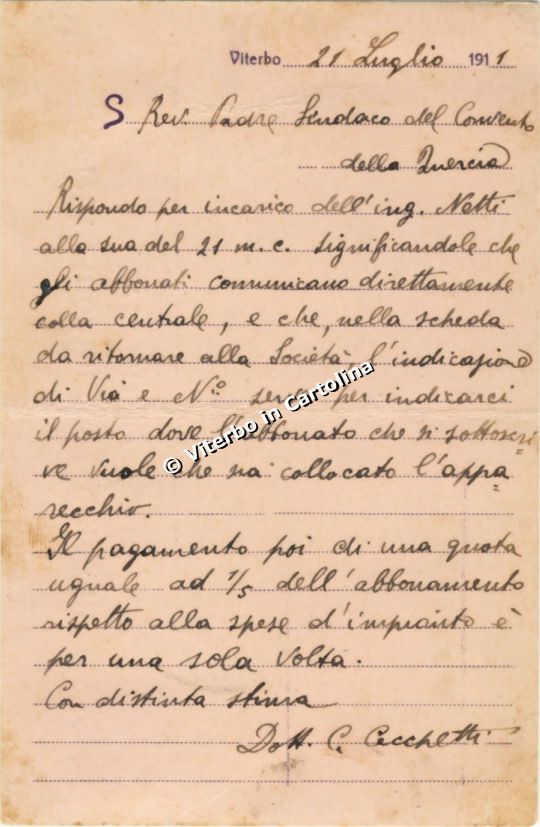 Viterbo 21 Luglio 1911
S Rev. Padre Sindaco del Convento
della Quercia
Rispondo per incarico dell'ing. Netti
alla sua del 21 m.c. significandole che
gli abbonati comunicano direttamente
colla centrale, e che, nella scheda
da ritornare alla Società, l'indicazione
di Via e N.o serve per indicarci
il posto dove l'abbonato che si sottoscri=
ve vuole che sia collocato l'appa=
recchio.
Il pagamento poi di una quota
uguale ad 1/5 dell'abbonamento
rispetto alla spese d'impianto è
per una sola volta.
Con distinta stima
Dott. C. Cecchetti
© Viterbo in Cartolina